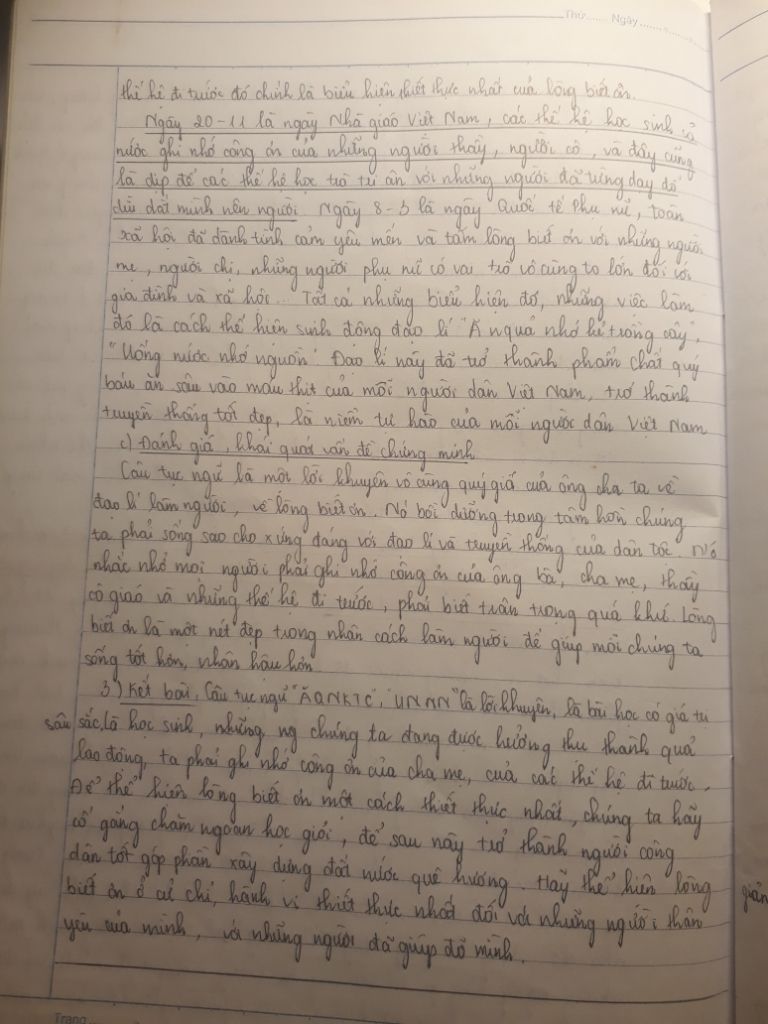 Thứ...... Ngày............
thế hệ đi trước đó chính là biểu hiện thiết thực nhất của lòng biết ơn.
Ngày 20-11 là ngày Nhà giáo Việt Nam, các thế hệ học sinh cả
nước ghi nhớ công ơn của những người thầy, người cô, và đây cũng
là dịp để các thế hệ học trò tri ân với những người đã từng dạy dỗ
dìu dắt mình nên người. Ngày 8-3 là ngày Quốc tế Phụ nữ, toàn
xã hội đã dành tình cảm yêu mến và tấm lòng biết ơn với những người
mẹ, người chị, những người phụ nữ có vai trò vô cùng to lớn đối với
gia đình và xã hội... Tất cả những biểu hiện đó, những việc làm
đó là cách thể hiện sinh động đạo lí "Ăn quả nhớ kẻ trồng cây",
"Uống nước nhớ nguồn". Đạo lí này đã trở thành phẩm chất quý
báu ăn sâu vào máu thịt của mỗi người dân Việt Nam, trở thành
truyền thống tốt đẹp, là niềm tự hào của mỗi người dân Việt Nam
c) Đánh giá, khái quát vấn đề chứng minh
Câu tục ngữ là một lời khuyên vô cùng quý giá của ông cha ta về
đạo lí làm người, về lòng biết ơn. Nó bồi dưỡng trong tâm hồn chúng
ta phải sống sao cho xứng đáng với đạo lí và truyền thống của dân tộc. Nó
nhắc nhở mọi người phải ghi nhớ công ơn của ông bà, cha mẹ, thầy
cô giáo và những thế hệ đi trước, phải biết trân trọng quá khứ. Lòng
biết ơn là một nét đẹp trong nhân cách làm người để giúp mỗi chúng ta
sống tốt hơn, nhân hậu hơn
3) Kết bài. Câu tục ngữ "ĂQNKTC", "UNNN" là lời khuyên, là bài học có giá trị
sâu sắc, là học sinh, những ng chúng ta đang được hưởng thụ thành quả
lao động, ta phải ghi nhớ công ơn của cha mẹ, của các thế hệ đi trước.
Để thể hiện lòng biết ơn một cách thiết thực nhất, chúng ta hãy
cố gắng chăm ngoan học giỏi, để sau này trở thành người công
dân tốt góp phần xây dựng đất nước quê hương. Hãy thể hiện lòng
biết ơn ở cử chỉ, hành vi thiết thực nhất đối với những người thân
yêu của mình, và những người đã giúp đỡ mình.
giản
Trang